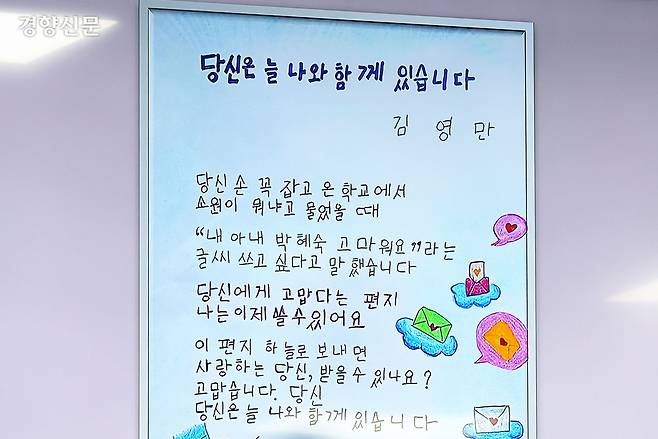 경향신문
당신은 늘 나와 함께 있습니다
김 영 만
당신 손 꼭 잡고 온 학교에서
소원이 뭐냐고 물었을 때
“내 아내 박혜숙 고마워요”라는
글씨 쓰고 싶다고 말 했습니다
당신에게 고맙다는 편지
나는 이제 쓸 수 있어요
이 편지 하늘로 보내면
사랑하는 당신, 받을 수 있나요?
고맙습니다. 당신
당신은 늘 나와 함께 있습니다